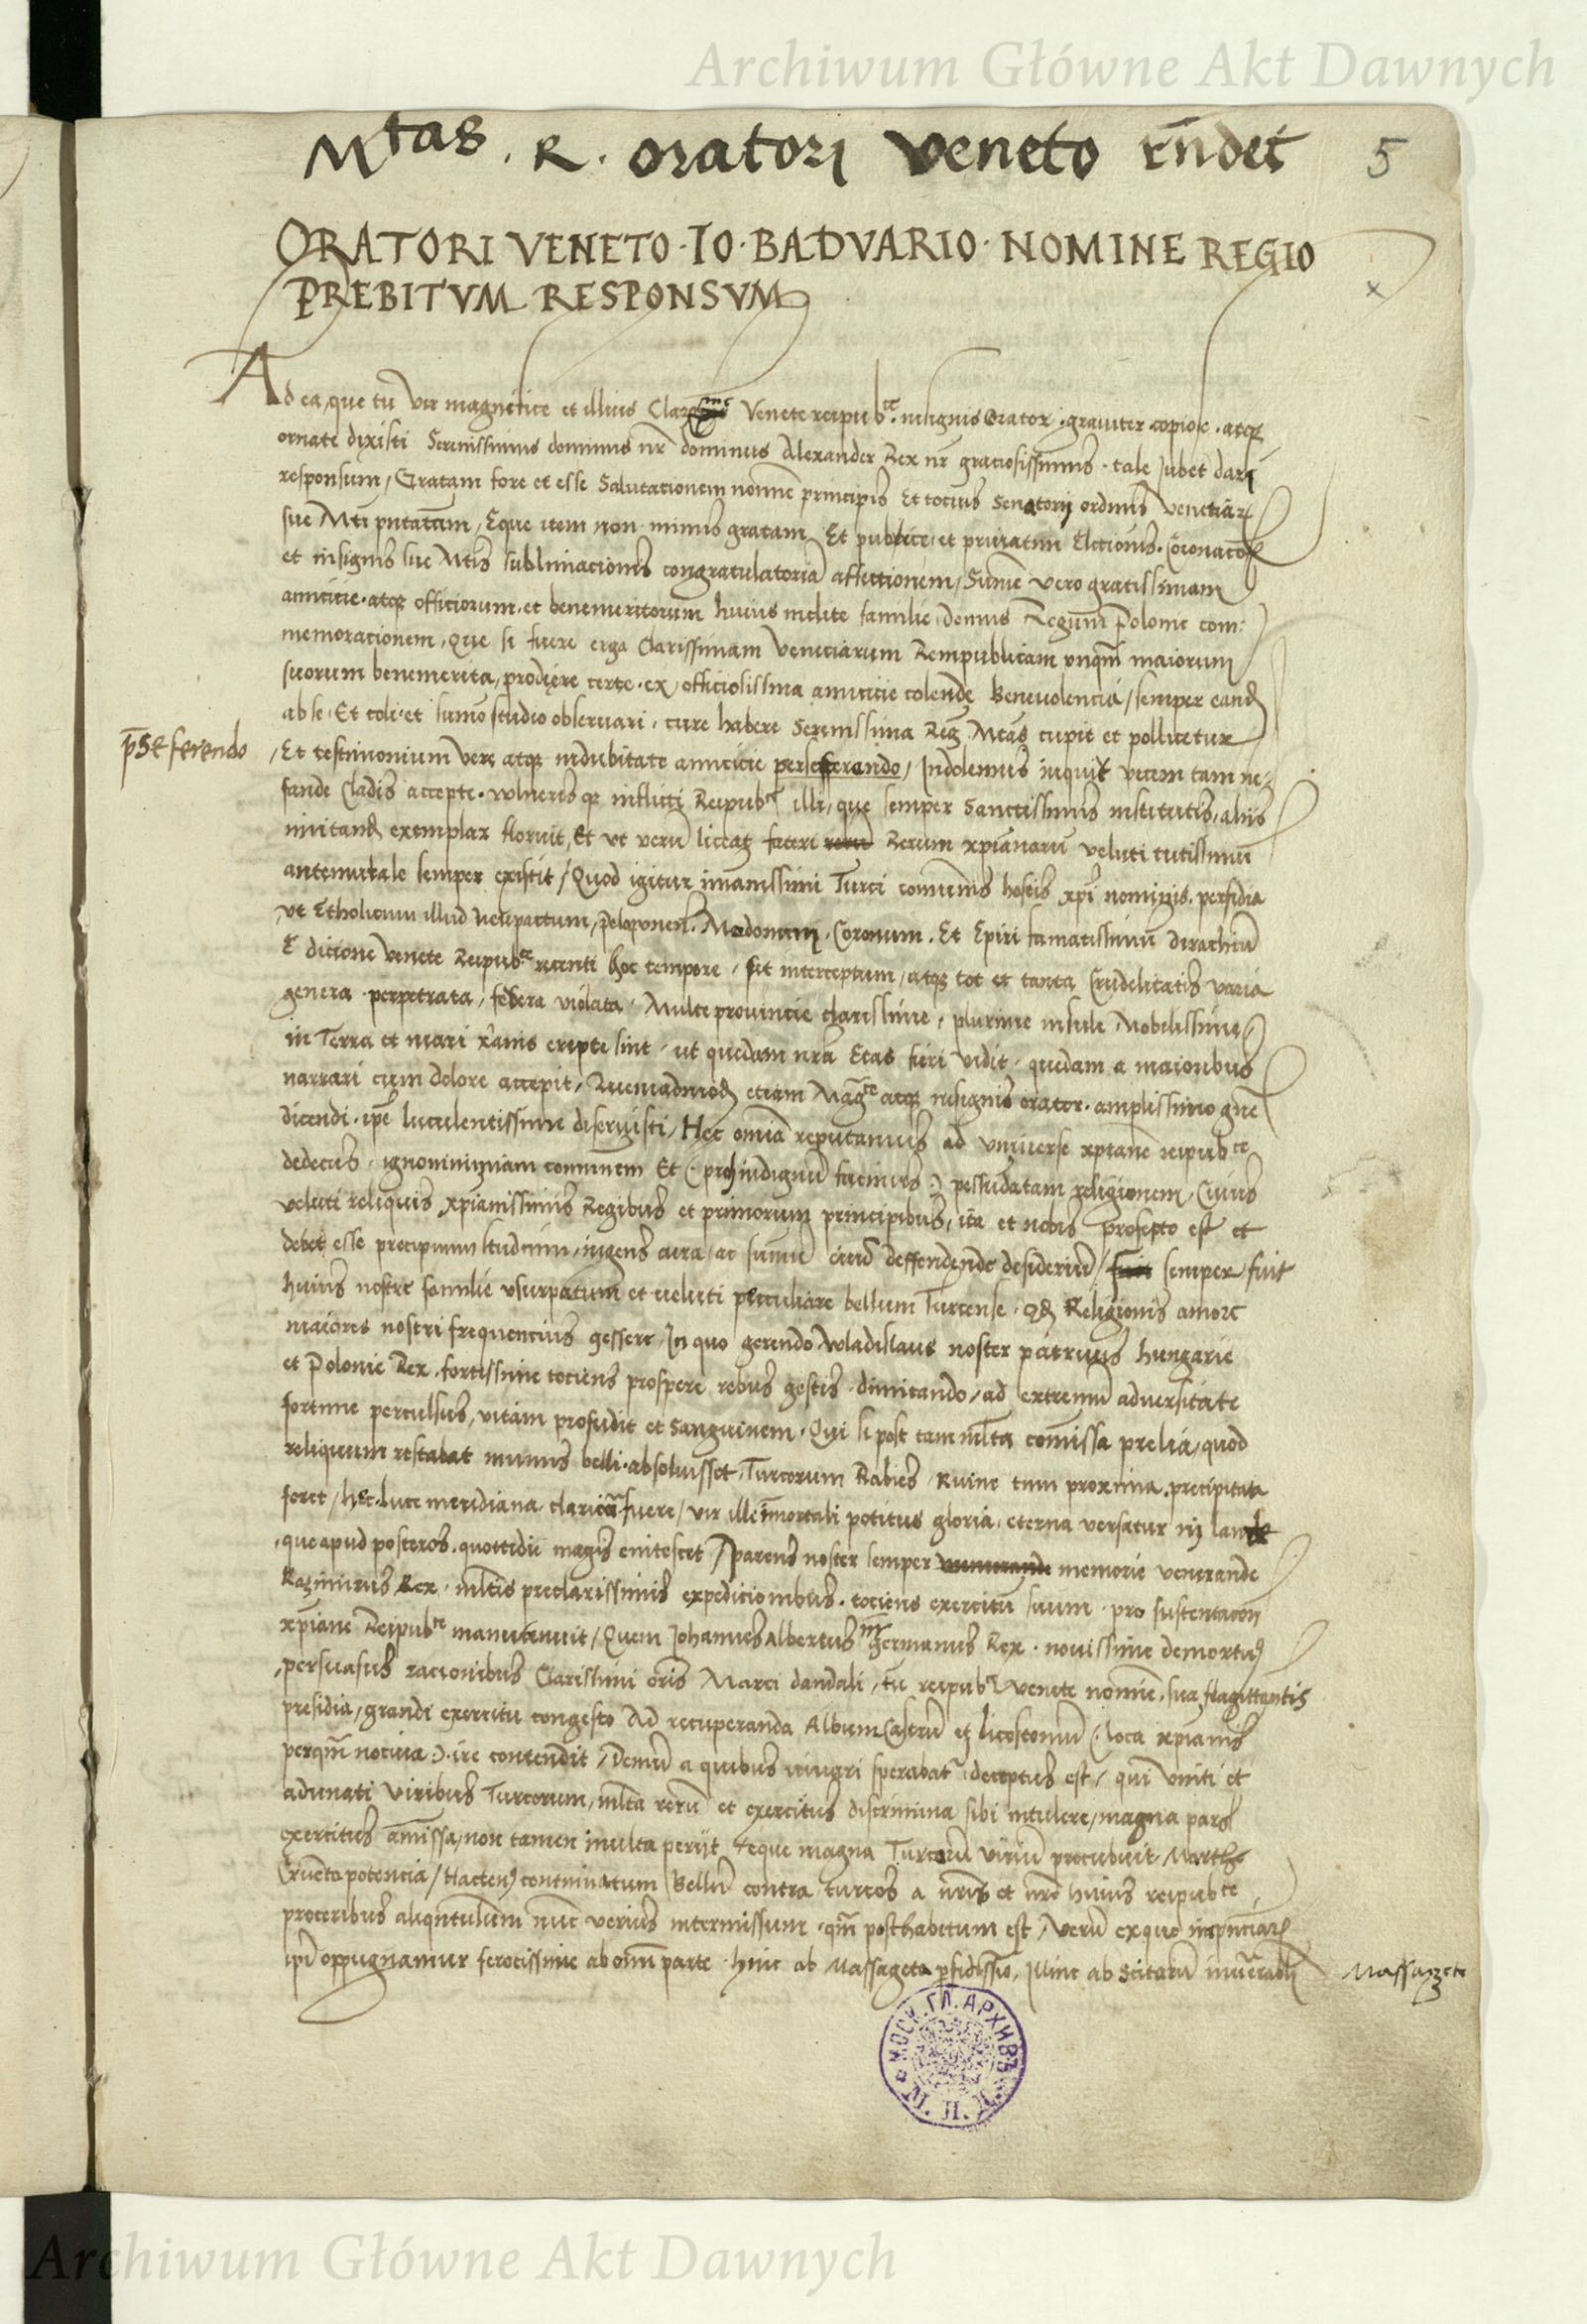 Archiwum Główne Akt Dawnych
Mtas . R . oratori veneto rñdet 5
ORATORI VENETO · IO · BADVARIO · NOMINE REGIO
PREBITVM RESPONSVM
x
Ad ea, que tu vir magnifice et illius Venete reipubce. insignis Orator, graviter copiose, atqz
ornate dixisti Serenissimus dominus nr dominus Alexander Rex nr graciosissimus, tale Jubet dari
responsum, Gratam fore et esse Salutacionem nomine principis Et tocius Senatorij ordinis Venetiar
sue Mti Eque item non minus gratam, Et publice et privatim Elctionis.
et insignis sue Mtis sublimacionis congratulatoria affectionem, Summe vero gratissimam
amicicie atqz officiorum, et benemeritorum huius inclite familie domus Regum Polonie com:
memoracionem, Que si fuere erga Clarissimam Veneciarum Rempublicam unqm maiorum
suorum benemerita, prodiere certe ex officiosissima amicicie colende Benevolencia, semper eand
ab se, Et coli et summo studio observari, cure habere Serenissima Reg. Mtas cupit et pollicetur
pse ferendo
Et testimonium vere atqz indubitate amicicie perseferendo, Indolemus inquit vicem tam ne:
fande Cladis accepte, vulnerisqz inflicti Reipubce illi, que semper Sanctissimis institutis, aliis
imitand exemplar floruit, Et ut veru liceat fateri Rerum xpianaru veluti tutissimu
antemurale semper existit, Quod igitur imanissimi Turci communis hostis xpi nominis, perfidia
ut Etholicum illud neupactum, peloponen. Modonum, Coronum, Et Epiri famatissimu dirachiu
E dicione Venete Reipubce recenti hoc tempore, sit interceptum, atqz tot et tanta Crudelitatis varia
genera perpetrata, federa violata, Multe provincie clarissime, plurime insule Nobilissime
in Terra et mari xanis erepte sint, ut quedam nra Etas fieri vidit, quedam a maioribus
narrari cum dolore accepit, Quemadmod etiam Magce atqz insignis orator, amplissimo gne
dicendi, ipe luculentissime diseruisti, Hec omia reputamus ad universe xpiane reipubce
dedecus, ignominiam communem Et (proh indignu facinus) pessudatam religionem, Cuius
veluti reliquis xpianissimis Regibus et primorum principibus, ita et nobis profecto est et
debet esse precipuum studium, ingens cura, ac summu eiud deffendende desideriu, semper fuit
huius nostre familie usurpatum et veluti peculiare bellum Turcense, qd Religionis amore
maiores nostri frequencius gessere, In quo gerendo wladislaus noster patruus hungarie
et Polonie Rex, fortissime tociens prospere rebus gestis, dimicando, ad extremu adversitate
fortune perculsus, vitam profudit et sanguinem, Qui si post tam mlta comissa prelia, quod
reliquum restabat munus belli absoluisset, Turcorum Rabies Ruine tum proxima, precipitata
foret, hec luce meridiana clariora fuere, vir ille imortali potitus gloria, eterna versatur in laude
que apud posteros, quottidii magis enitescet, Parens noster semper memorie venerande
Kazimirus Rex, mltis preclarissimis expedicionibus, tociens exercitu suum pro sustentacon
xpiane Reipubce manutenuit, Quem Johannes Albertus germanus Rex, novissime demortus
persuasus racionibus Clarissimi oris Marci dandali, tu reipubce venete nomine, sua flagittantis
presidia, grandi exercitu congesto Ad recuperanda Album Castru et licostomu (loca xpianis
perqm nociva) ire contendit, Demu a quibus iuvari sperabat, deceptus est, qui uniti et
adunati viribus Turcorum, mlta reru et exercitus discrimina sibi intulere, magna pars
exercitus amissa, non tamen inulta perijt, eque magna Turcoru viriu procubuit,
potencia, Hactenus continuatum Bellu contra turcos a nris et nre huius reipubce
proceribus aliqntulum nuc verius intermissum, qm posthabitum est, Veru ex quo
ipi oppugnamur ferocissime ab omi parte, hinc ab Massageta pfidissio, Illinc ab Scitaru
Massagete
МОСК. ГЛ. АРХИВЪ
М. И. Д.
Archiwum Główne Akt Dawnych